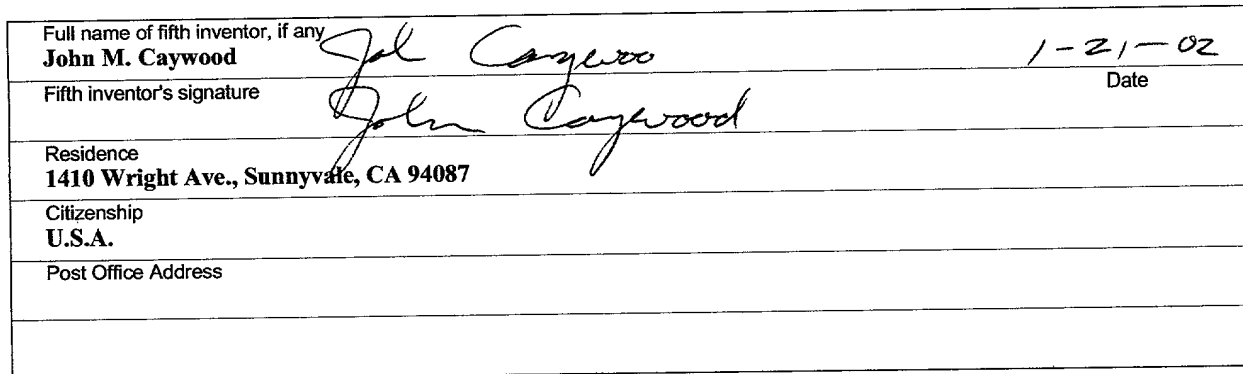 Full name of fifth inventor, if any
John M. Caywood Joh Caywoo 1-21-02
Date
Fifth inventor's signature
John Caywood
Residence
1410 Wright Ave., Sunnyvale, CA 94087
Citizenship
U.S.A.
Post Office Address